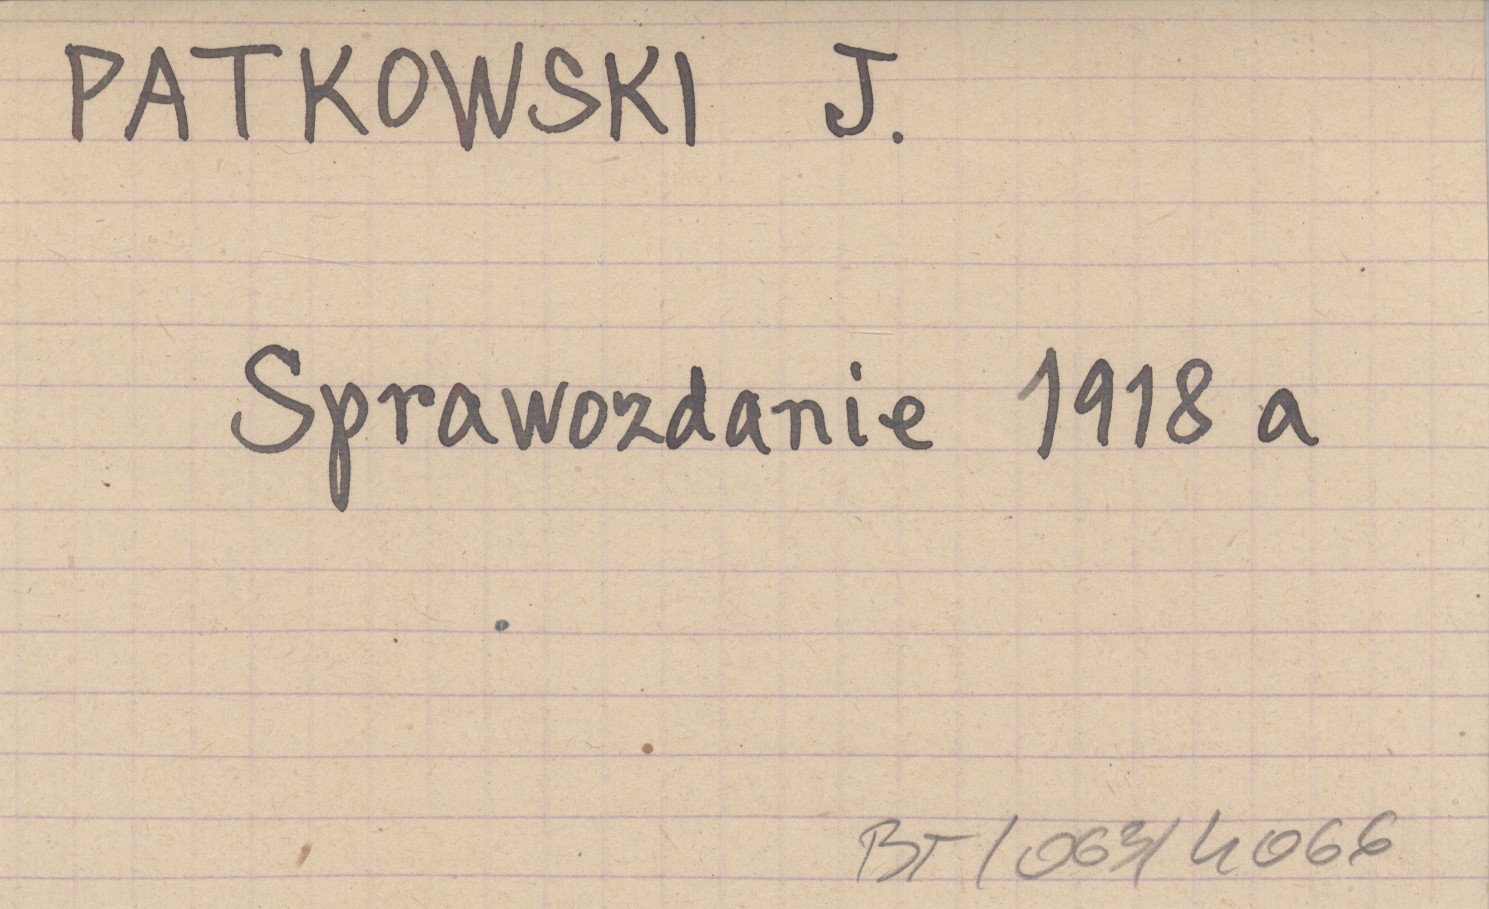 PATKOWSKI J.
Sprawozdanie 1918 a
BT/063/4066